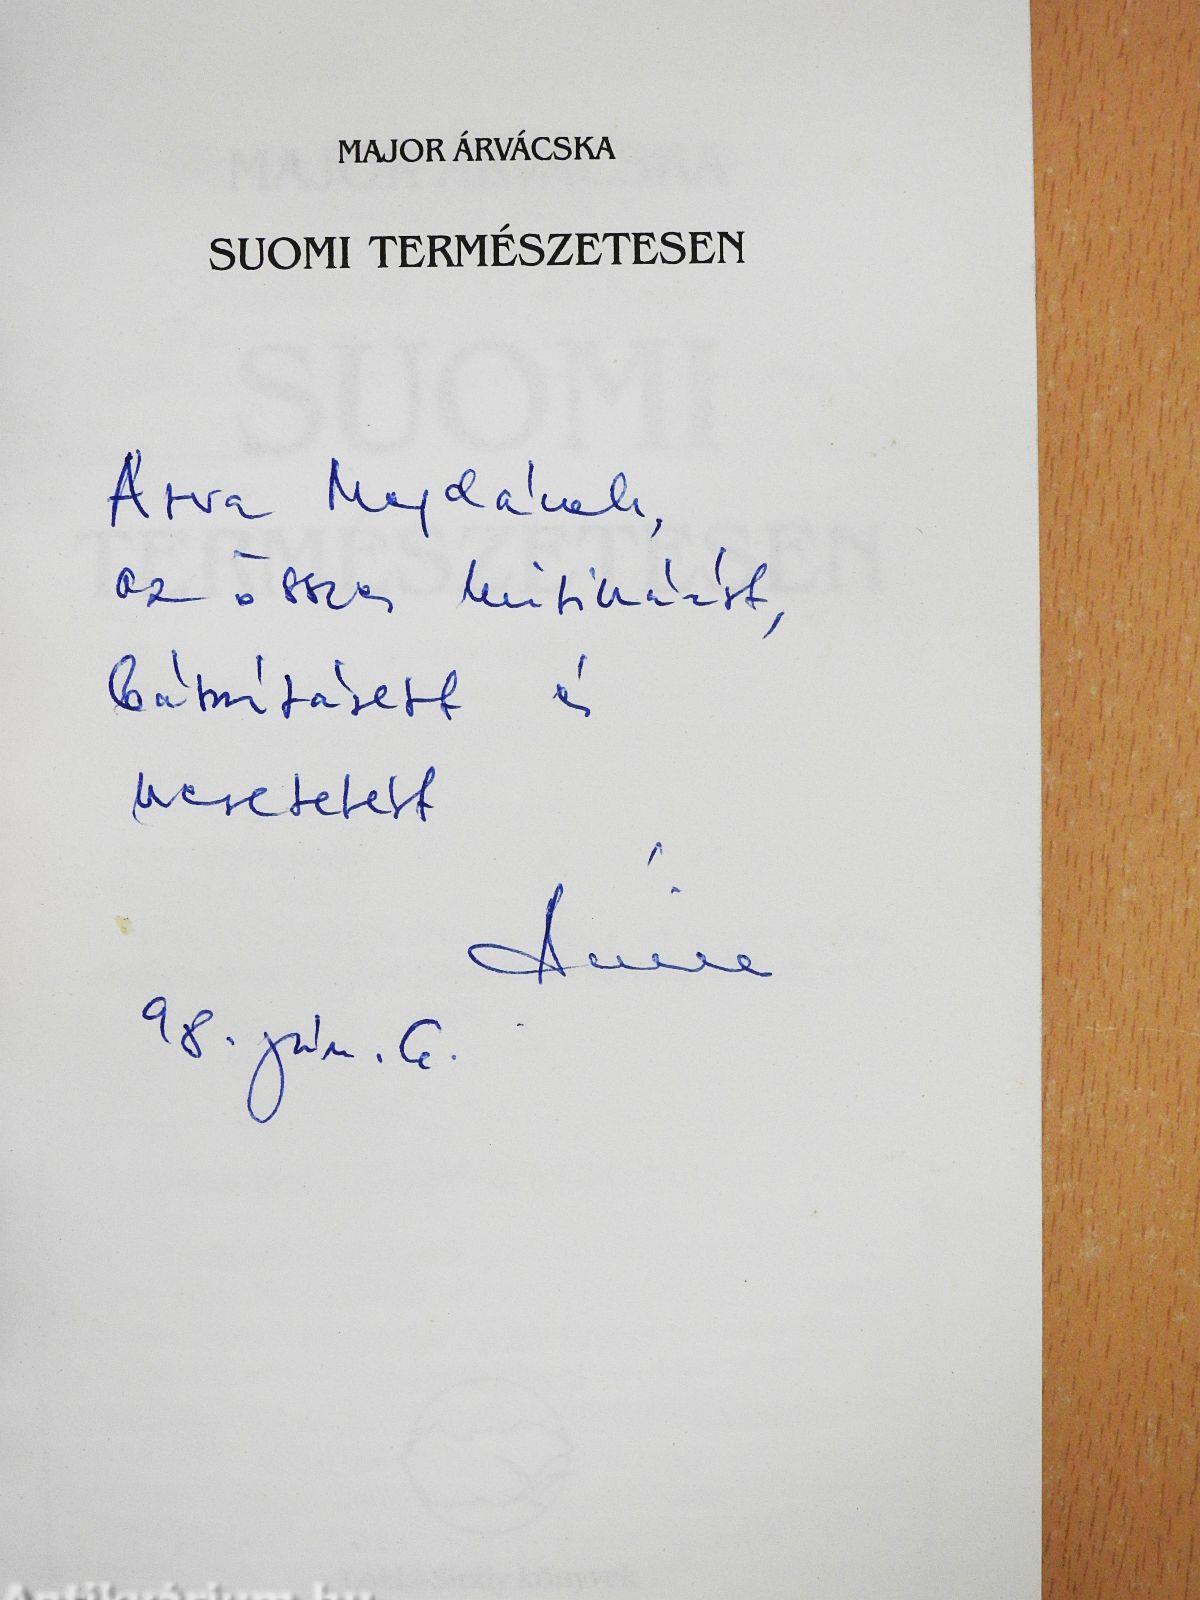 MAJOR ÁRVÁCSKA
SUOMI TERMÉSZETESEN
Árva Magdának,
az össze
bátorításért és
szeretetért
98. jún. 6.
Antikvárium.hu